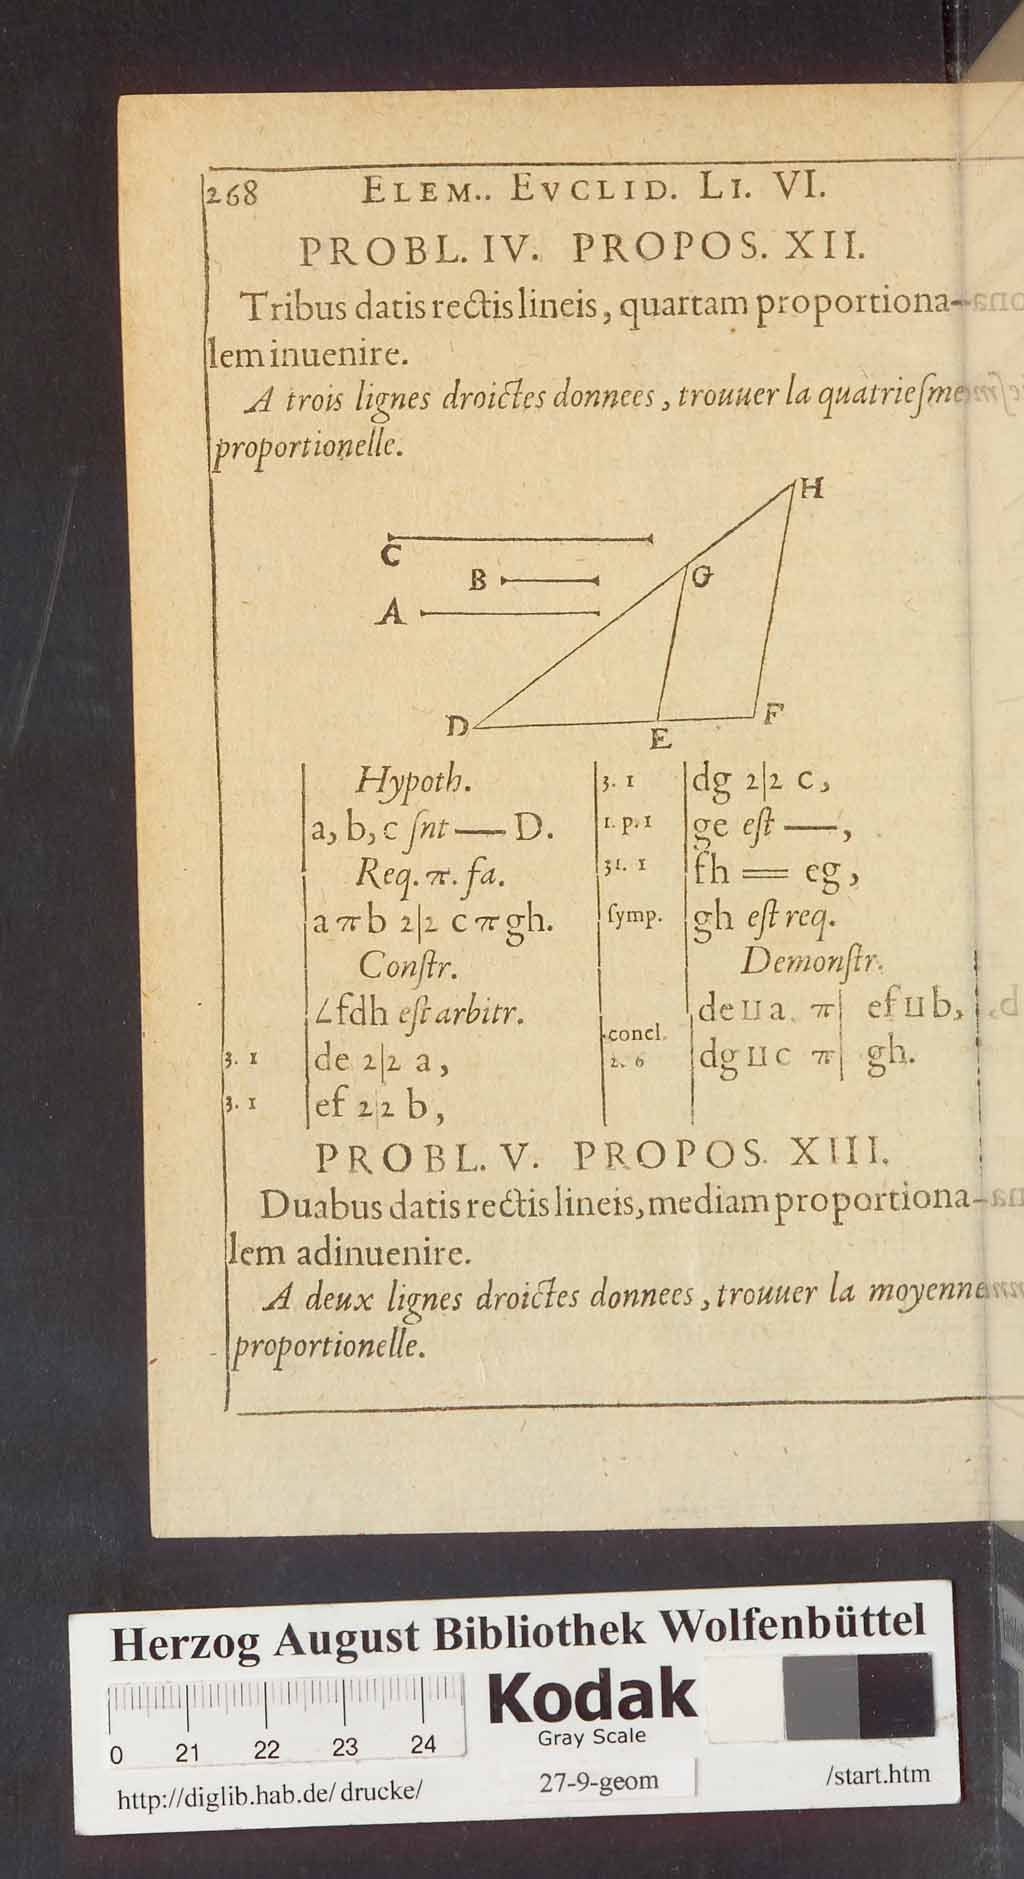 268 ELEM.. EVCLID. LI. VI.
PROBL. IV. PROPOS. XII.
Tribus datis rectis lineis, quartam proportiona-
lem inuenire.
A trois lignes droictes donnees, trouuer la quatrieſme
proportionelle.
H
C
B
G
A
D
E
F
Hypoth.
a, b, c ſnt — D.
Req. π. fa.
a π b 2|2 c π gh.
Conſtr.
∠fdh eſt arbitr.
3. 1 de 2|2 a,
3. 1 ef 2|2 b,
3. 1 dg 2|2 c,
1. p. 1 ge eſt —,
31. 1 fh = eg,
ſymp. gh eſt req.
Demonſtr.
de ⊔ a π| ef ⊔ b,
concl.
2. 6 dg ⊔ c π| gh.
PROBL. V. PROPOS. XIII.
Duabus datis rectis lineis, mediam proportiona-
lem adinuenire.
A deux lignes droictes donnees, trouuer la moyenne
proportionelle.
Herzog August Bibliothek Wolfenbüttel
Kodak
Gray Scale
0 21 22 23 24
http://diglib.hab.de/drucke/ 27-9-geom /start.htm